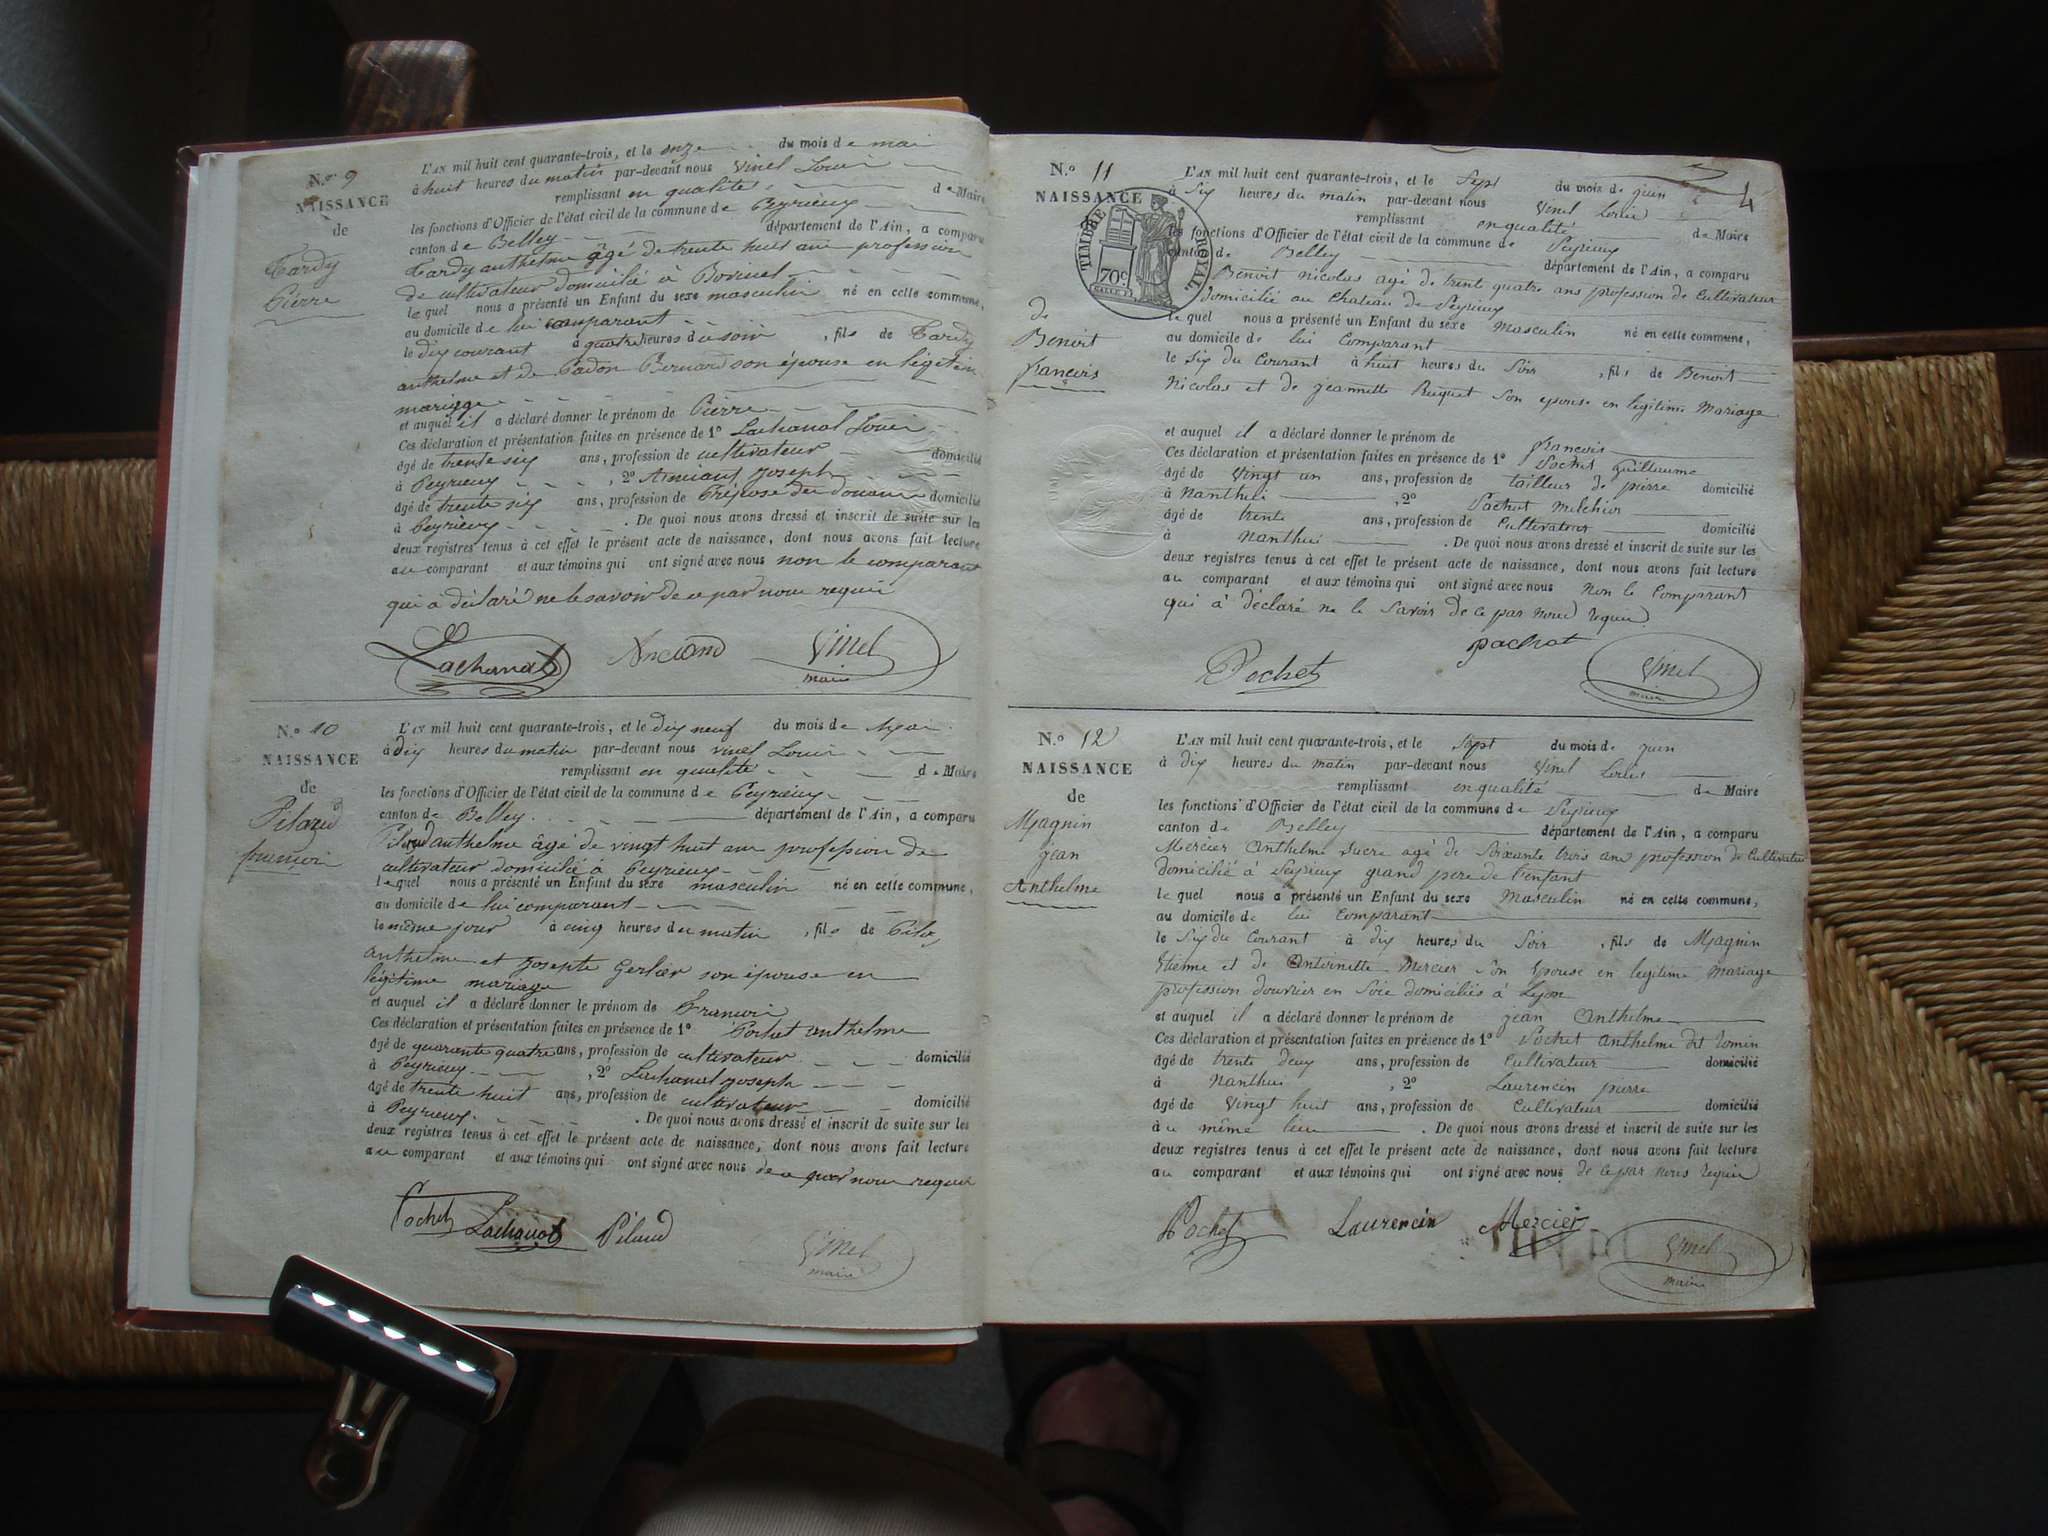 N.º 9
NAISSANCE
de
Tardy
Pierre
L'AN mil huit cent quarante-trois, et le onze du mois de mai
à huit heures du matin par-devant nous Vinel Louis
remplissant en qualité de Maire
les fonctions d'Officier de l'état civil de la commune de Peyrieux
canton de Belley département de l'Ain, a comparu
Tardy anthelme âgé de trente huit ans profession
de cultivateur domicilié à
le quel nous a présenté un Enfant du sexe masculin né en cette commune,
au domicile de lui comparant
le dix courant à quatre heures du soir, fils de Tardy
anthelme et de Bernard son épouse en légitime
mariage
et auquel il a déclaré donner le prénom de Pierre
Ces déclaration et présentation faites en présence de 1º Lachanal Louis
âgé de trente six ans, profession de cultivateur domicilié
à Peyrieux, 2º Joseph
âgé de trente six ans, profession de Préposé des douanes domicilié
à Peyrieux. De quoi nous avons dressé et inscrit de suite sur les
deux registres tenus à cet effet le présent acte de naissance, dont nous avons fait lecture
au comparant et aux témoins qui ont signé avec nous non le comparant
qui a déclaré ne le savoir de ce par nous requis
Lachanal Vinel
maire
N.º 10
NAISSANCE
de
Pilaud
francois
L'AN mil huit cent quarante-trois, et le dix neuf du mois de Mai
à dix heures du matin par-devant nous vinel Louis
remplissant en qualité de Maire
les fonctions d'Officier de l'état civil de la commune de Peyrieux
canton de Belley département de l'Ain, a comparu
Pilaud anthelme âgé de vingt huit ans profession de
cultivateur domicilié à Peyrieux
le quel nous a présenté un Enfant du sexe masculin né en cette commune,
au domicile de lui comparant
le même jour à cinq heures du matin, fils de
anthelme et Josephte Gerlier son épouse en
légitime mariage
et auquel il a déclaré donner le prénom de Francois
Ces déclaration et présentation faites en présence de 1º Pochet anthelme
âgé de quarante quatre ans, profession de cultivateur domicilié
à Peyrieux, 2º Lachanal Joseph
âgé de trente huit ans, profession de cultivateur domicilié
à Peyrieux. De quoi nous avons dressé et inscrit de suite sur les
deux registres tenus à cet effet le présent acte de naissance, dont nous avons fait lecture
au comparant et aux témoins qui ont signé avec nous de ce par nous requis
Pochet Lachanal Pilaud Vinel
maire
4
N.º 11
NAISSANCE
TIMBRE ROYAL
70 c.
de
Benoit
françois
L'AN mil huit cent quarante-trois, et le Sept du mois de juin
à Six heures du matin par-devant nous Vinel Louis
remplissant en qualité de Maire
les fonctions d'Officier de l'état civil de la commune de Peyrieux
canton de Belley département de l'Ain, a comparu
Benoit nicolas agé de trent quatre ans profession de Cultivateur
domicilié au Chateau de Peyrieux
le quel nous a présenté un Enfant du sexe Masculin né en cette commune,
au domicile de lui Comparant
le Six du Courant à huit heures du Soir, fils de Benoit
Nicolas et de jeannette Ruguet Son epouse en légitime Mariage
et auquel il a déclaré donner le prénom de françois
Ces déclaration et présentation faites en présence de 1º Pochet guillaume
âgé de Vingt un ans, profession de tailleur de pierre domicilié
à Nanthui, 2º Pachot Melchior
âgé de trente ans, profession de Cultivateur domicilié
à Nanthui. De quoi nous avons dressé et inscrit de suite sur les
deux registres tenus à cet effet le présent acte de naissance, dont nous avons fait lecture
au comparant et aux témoins qui ont signé avec nous Non le Comparant
qui à déclaré ne le Savoir de ce par nous requis
Pochet pachot Vinel
maire
N.º 12
NAISSANCE
de
Magnin
jean
Anthelme
L'AN mil huit cent quarante-trois, et le Sept du mois de juin
à dix heures du matin par-devant nous Vinel Louis
remplissant en qualité de Maire
les fonctions d'Officier de l'état civil de la commune de Peyrieux
canton de Belley département de l'Ain, a comparu
Mercier Anthelme Sucre agé de Soixante trois ans profession de Cultivateur
domicilié à Peyrieux grand pere de l'enfant
le quel nous a présenté un Enfant du sexe Masculin né en cette commune,
au domicile de lui Comparant
le Six du Courant à dix heures du Soir, fils de Magnin
Etienne et de Antoinette Mercier Son Epouse en legitime mariage
profession douvrier en Soie domiciliés à Lyon
et auquel il a déclaré donner le prénom de jean Anthelme
Ces déclaration et présentation faites en présence de 1º Pochet Anthelme dit
âgé de trente deux ans, profession de Cultivateur domicilié
à Nanthui, 2º Laurencin pierre
âgé de Vingt huit ans, profession de Cultivateur domicilié
à u même lieu. De quoi nous avons dressé et inscrit de suite sur les
deux registres tenus à cet effet le présent acte de naissance, dont nous avons fait lecture
au comparant et aux témoins qui ont signé avec nous de ce par nous requis
Pochet Laurencin Mercier Vinel
maire